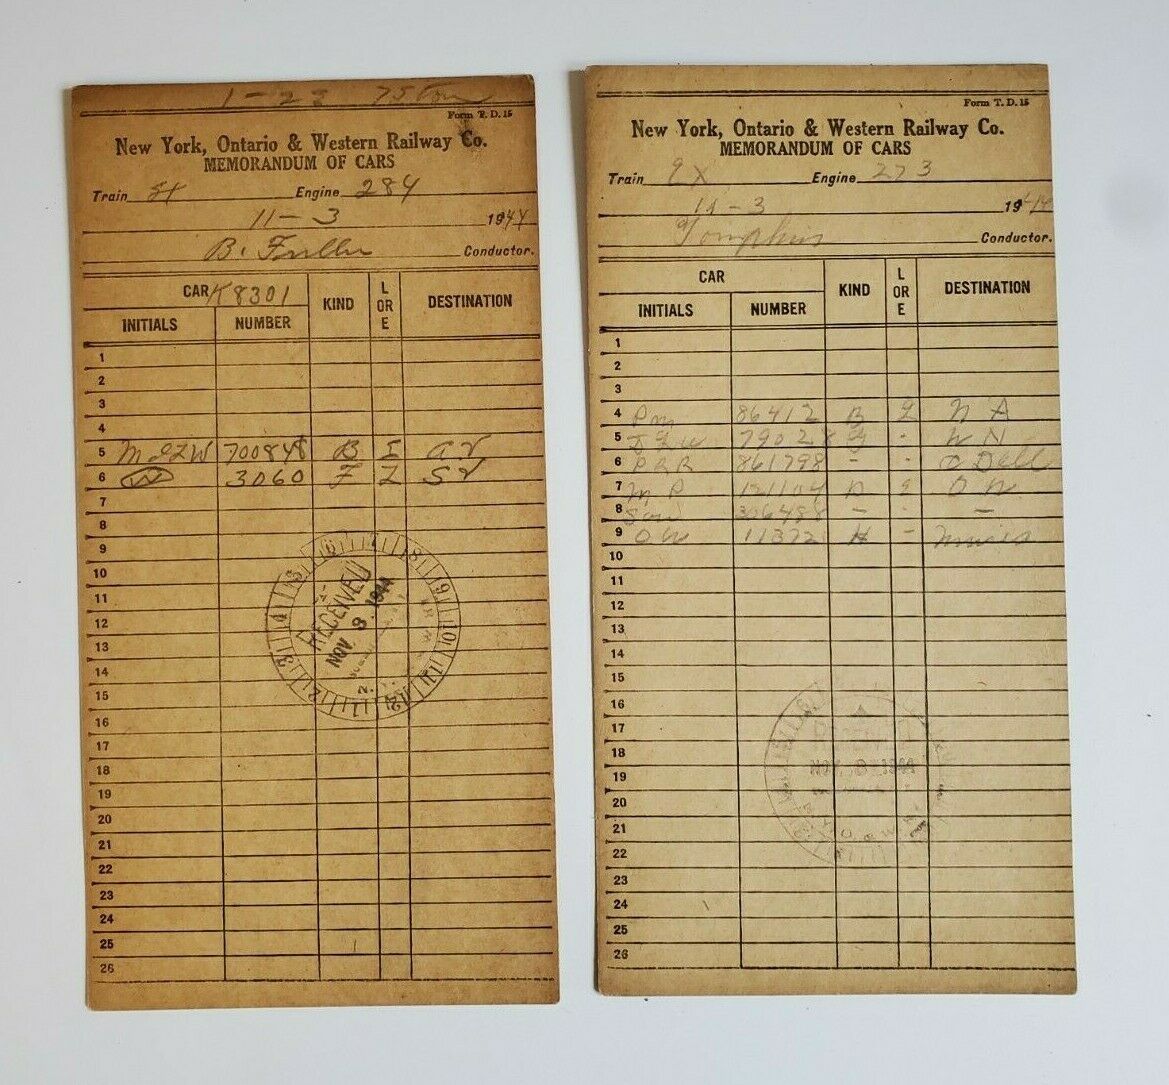 1 - 23 75 Ton
Form T. D. 15
New York, Ontario & Western Railway Co.
MEMORANDUM OF CARS
Train Engine 284
11 - 3 1944
B. Fuller Conductor.
CAR K8301 KIND L OR E DESTINATION
INITIALS NUMBER
1
2
3
4
5 700848 B
6 3060 F
7
8
9
10
11
12
13
14
15
16
17
18
19
20
21
22
23
24
25
26
RECEIVED
NOV. 1944
Form T. D. 15
New York, Ontario & Western Railway Co.
MEMORANDUM OF CARS
Train Ex Engine 273
11 - 3 1944
Tompkins Conductor.
CAR KIND L OR E DESTINATION
INITIALS NUMBER
1
2
3
4 Pm 86412 B N A
5 W N
6 861798 - O Dell
7 M P O N
8 - -
9 O W 11372 H -
10
11
12
13
14
15
16
17
18
19
20
21
22
23
24
25
26
RECEIVED
NOV. 1944